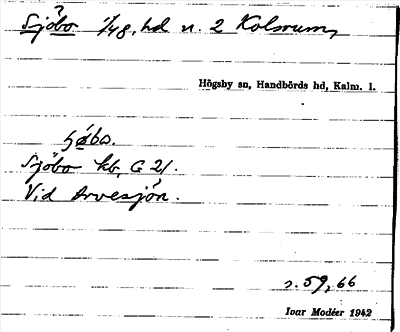 Sjöbo 1/48, hd n. 2 Kolsrum,
Högsby sn, Handbörds hd, Kalm. l.
ʃǿbo.
Sjöbo kb, G 21.
Vid Arvesjön.
s. 59, 66
Ivar Modéer 1942